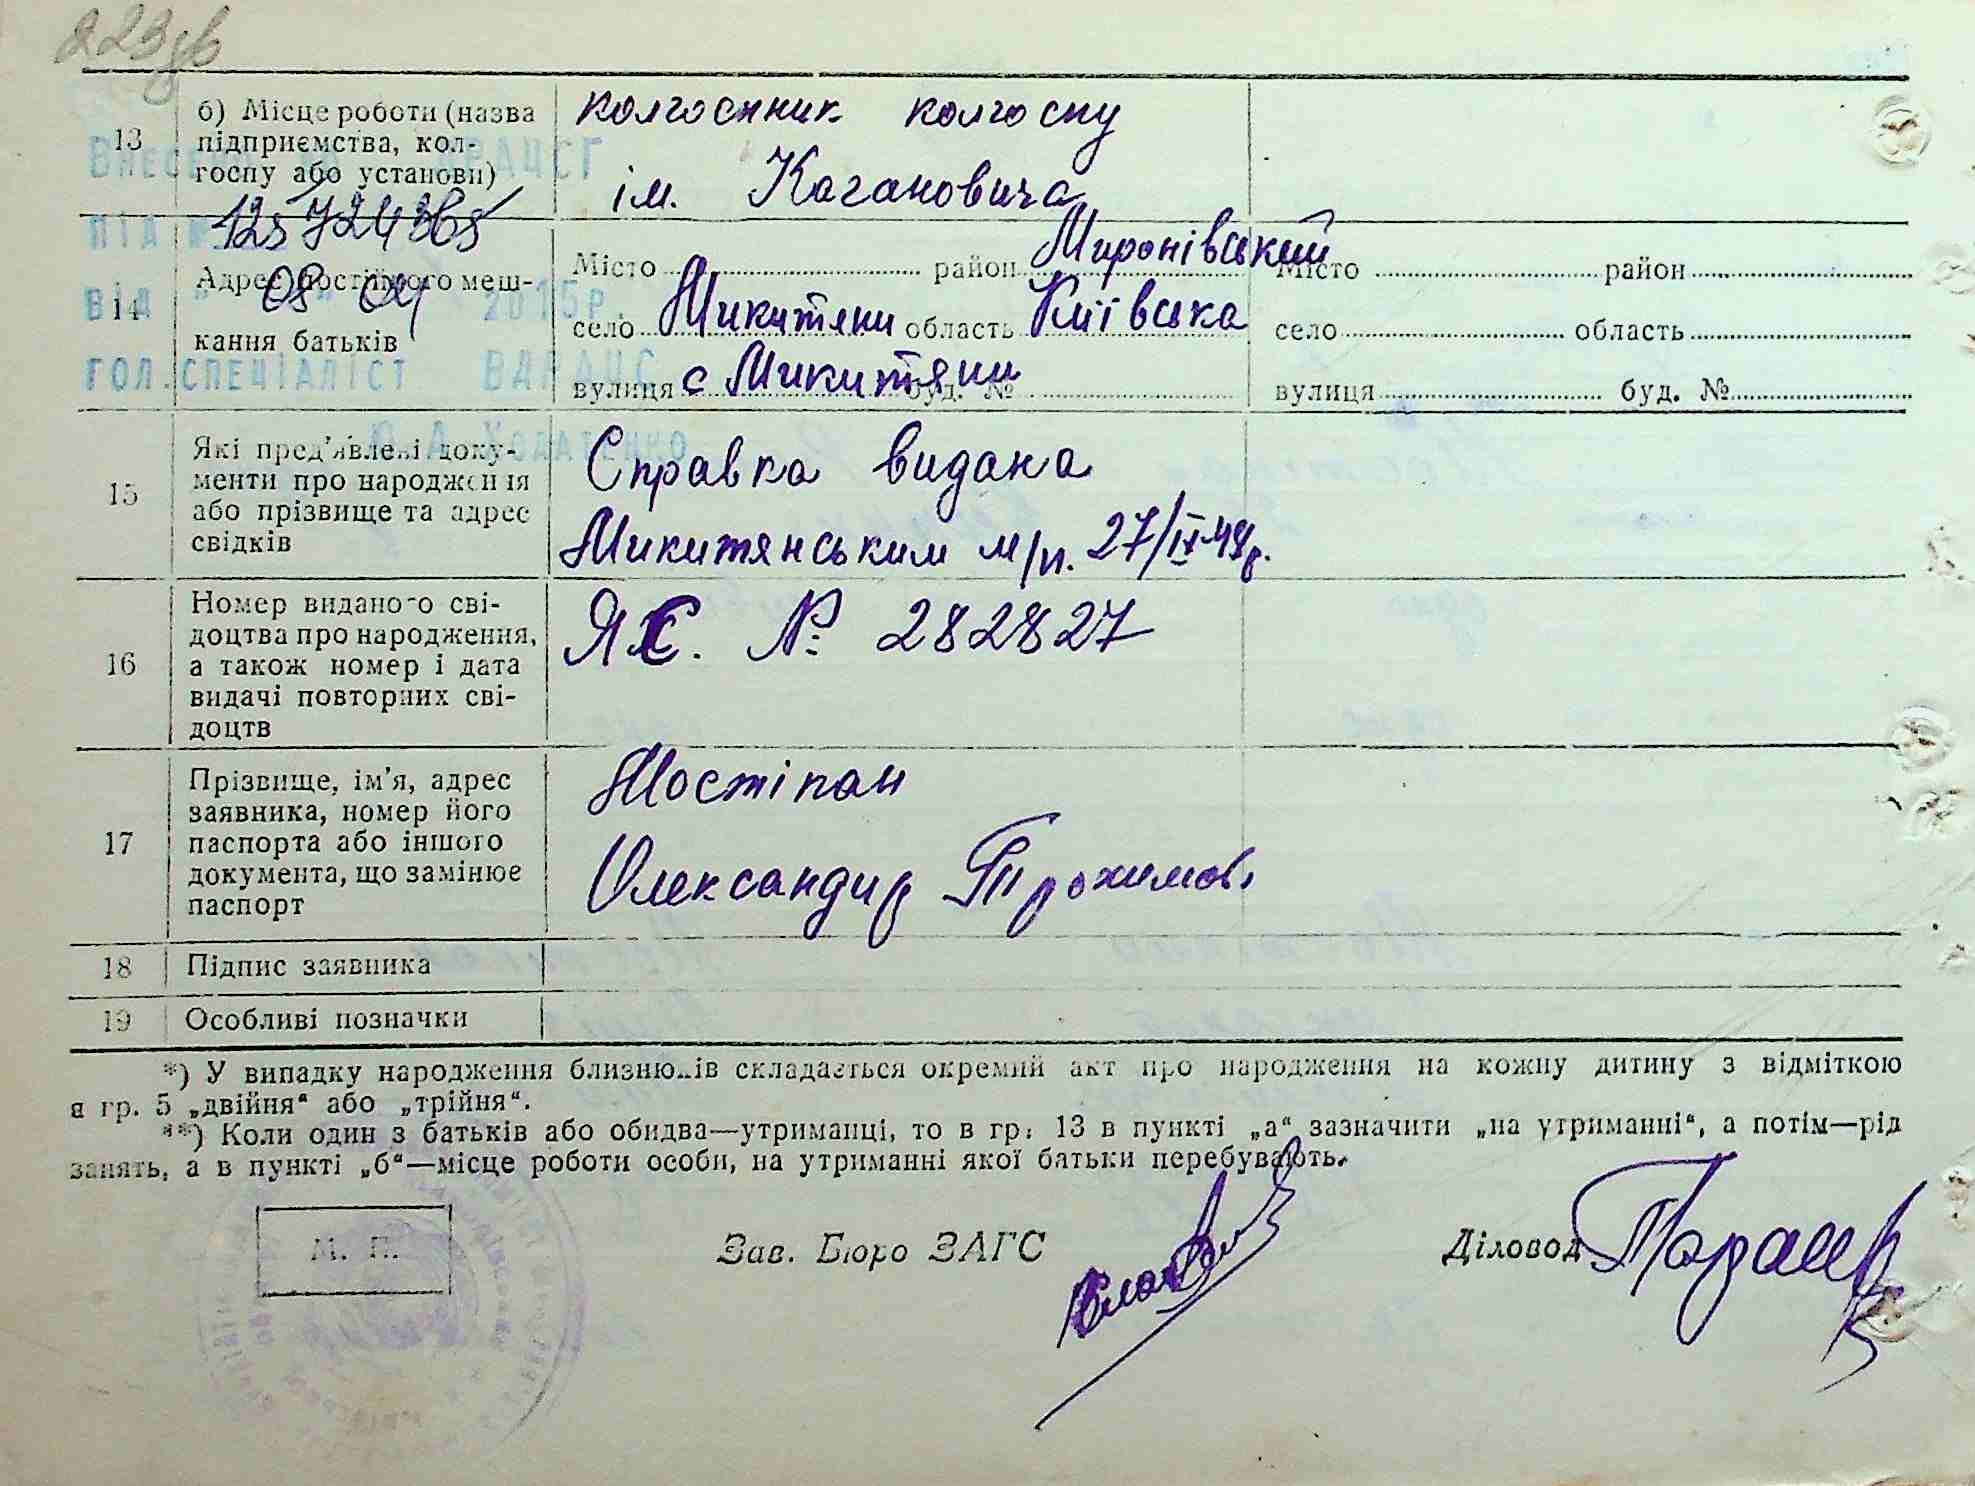 223зв
13
б) Місце роботи (назва
підприємства, кол-
госпу або установи)
колгоспник колгоспу
ім. Кагановича
ВНЕСЕНО ДРАЦСГ
ПІД №
125724365
ВІД " 08 " 04 2015р.
ГОЛ.СПЕЦІАЛІСТ ВДРАЦС
14
Адрес постійного меш-
кання батьків
Місто район Миронівський
село Микитяни область Київська
вулиця с Микитяни буд. №
Місто район
село область
вулиця буд. №
15
Які пред'явлені доку-
менти про народження
або прізвище та адрес
свідків
Справка видана
Микитянським м/п. 27/IX 49р.
16
Номер виданого сві-
доцтва про народження,
а також номер і дата
видачі повторних сві-
доцтв
ЯЄ. № 282827
17
Прізвище, ім'я, адрес
заявника, номер його
паспорта або іншого
документа, що замінює
паспорт
Мостіпан
Олександр Трохимов.
18
Підпис заявника
19
Особливі позначки
*) У випадку народження близнюків складається окремий акт про народження на кожну дитину з відміткою
в гр. 5 „двійня“ або „трійня“.
**) Коли один з батьків або обидва—утриманці, то в гр. 13 в пункті „а“ зазначити „на утриманні“, а потім—рід
занять, а в пункті „б“—місце роботи особи, на утриманні якої батьки перебувають.
М. П.
Зав. Бюро ЗАГС
Діловод